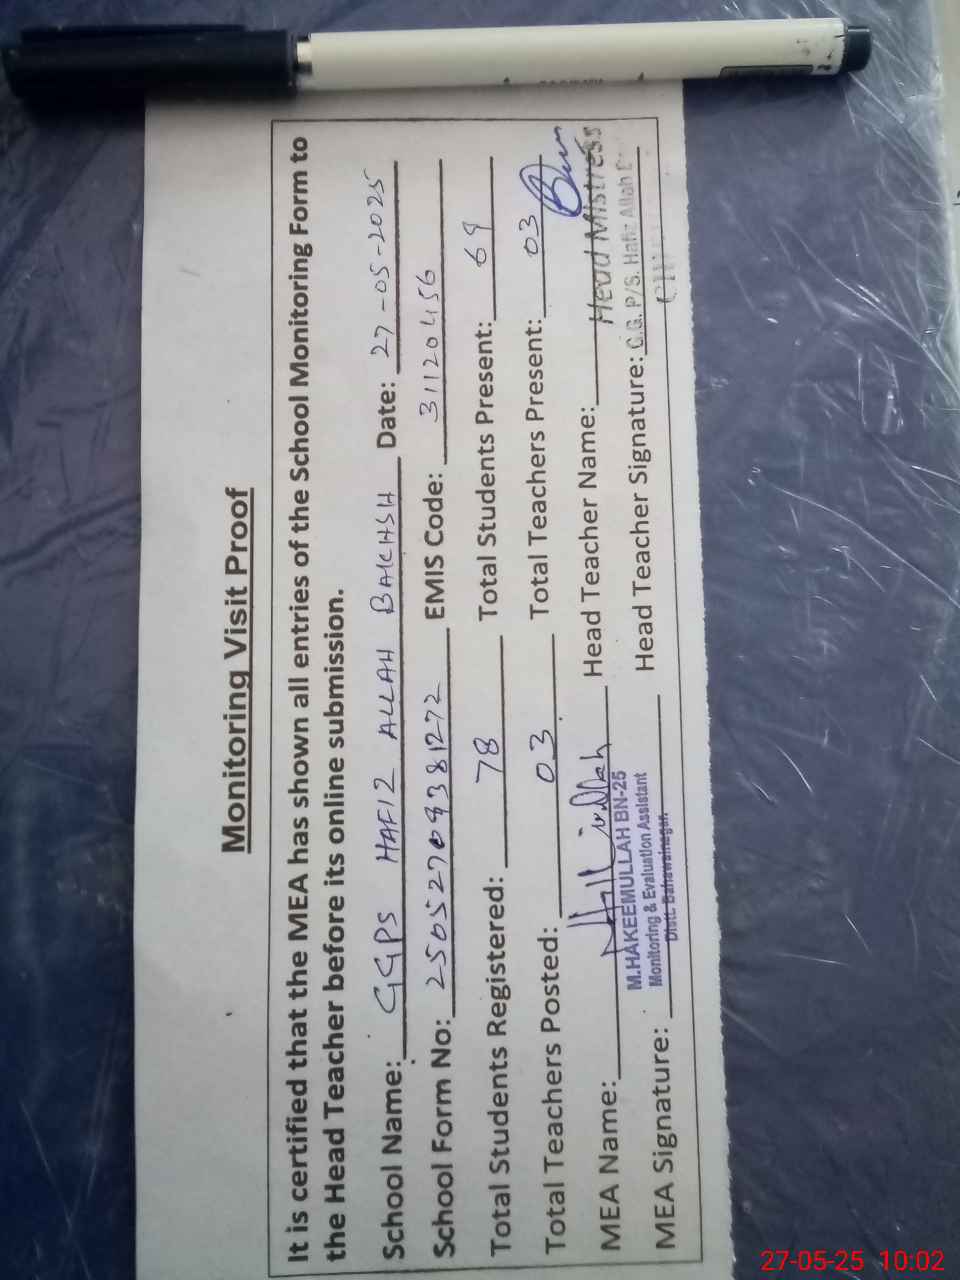 Monitoring Visit Proof
It is certified that the MEA has shown all entries of the School Monitoring Form to
the Head Teacher before its online submission.
School Name: GGPS HAFIZ ALLAH BAKHSH Date: 27-05-2025
School Form No: EMIS Code: 31120456
Total Students Registered: 78 Total Students Present: 69
Total Teachers Posted: 03 Total Teachers Present: 03
MEA Name: Head Teacher Name: Head Mistress
M.HAKEEMULLAH BN-25
Monitoring & Evaluation Assistant
Distt. Bahawalnagar.
MEA Signature: Head Teacher Signature: G.G. P/S. Hafiz Allah
27-05-25 10:02